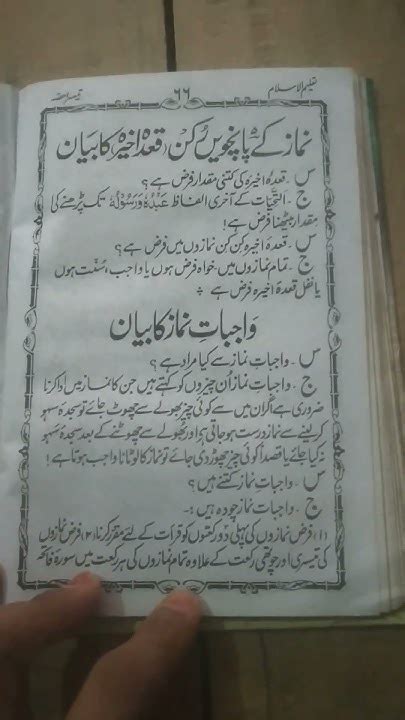 تعلیم الاسلام ۶۶ تیسرا حصہ
نماز کے پانچویں رکن (قعدہ اخیرہ) کا بیان
س ۔ قعدۂ اخیرہ کی کتنی مقدار فرض ہے؟
ج ۔ اَلتَّحِیَّات کے آخری الفاظ عَبْدُہٗ وَرَسُوْلُہٗ تک پڑھنے کی
مقدار بیٹھنا فرض ہے!
س ۔ قعدۂ اخیرہ کن کن نمازوں میں فرض ہے؟
ج ۔ تمام نمازوں میں خواہ فرض ہوں یا واجب، سنت ہوں
یا نفل قعدۂ اخیرہ فرض ہے
واجباتِ نماز کا بیان
س ۔ واجباتِ نماز سے کیا مراد ہے؟
ج ۔ واجباتِ نماز اُن چیزوں کو کہتے ہیں جن کا نماز میں ادا کرنا
ضروری ہے اگر ان میں سے کوئی چیز بھولے سے چھوٹ جائے تو سجدہ سہو
کر لینے سے نماز درست ہو جاتی ہے اور بھولے سے چھوٹنے کے بعد سجدہ سہو
نہ کیا جائے یا قصداً کوئی چیز چھوڑ دی جائے تو نماز کا لوٹانا واجب ہوتا ہے!
س ۔ واجباتِ نماز کتنے ہیں؟
ج ۔ واجباتِ نماز چودہ ہیں :-
(۱) فرض نمازوں کی پہلی دو رکعتوں کو قرأت کے لئے مقرر کرنا (۲) فرض نمازوں
کی تیسری اور چوتھی رکعت کے علاوہ تمام نمازوں کی ہر رکعت میں سورۂ فاتحہ